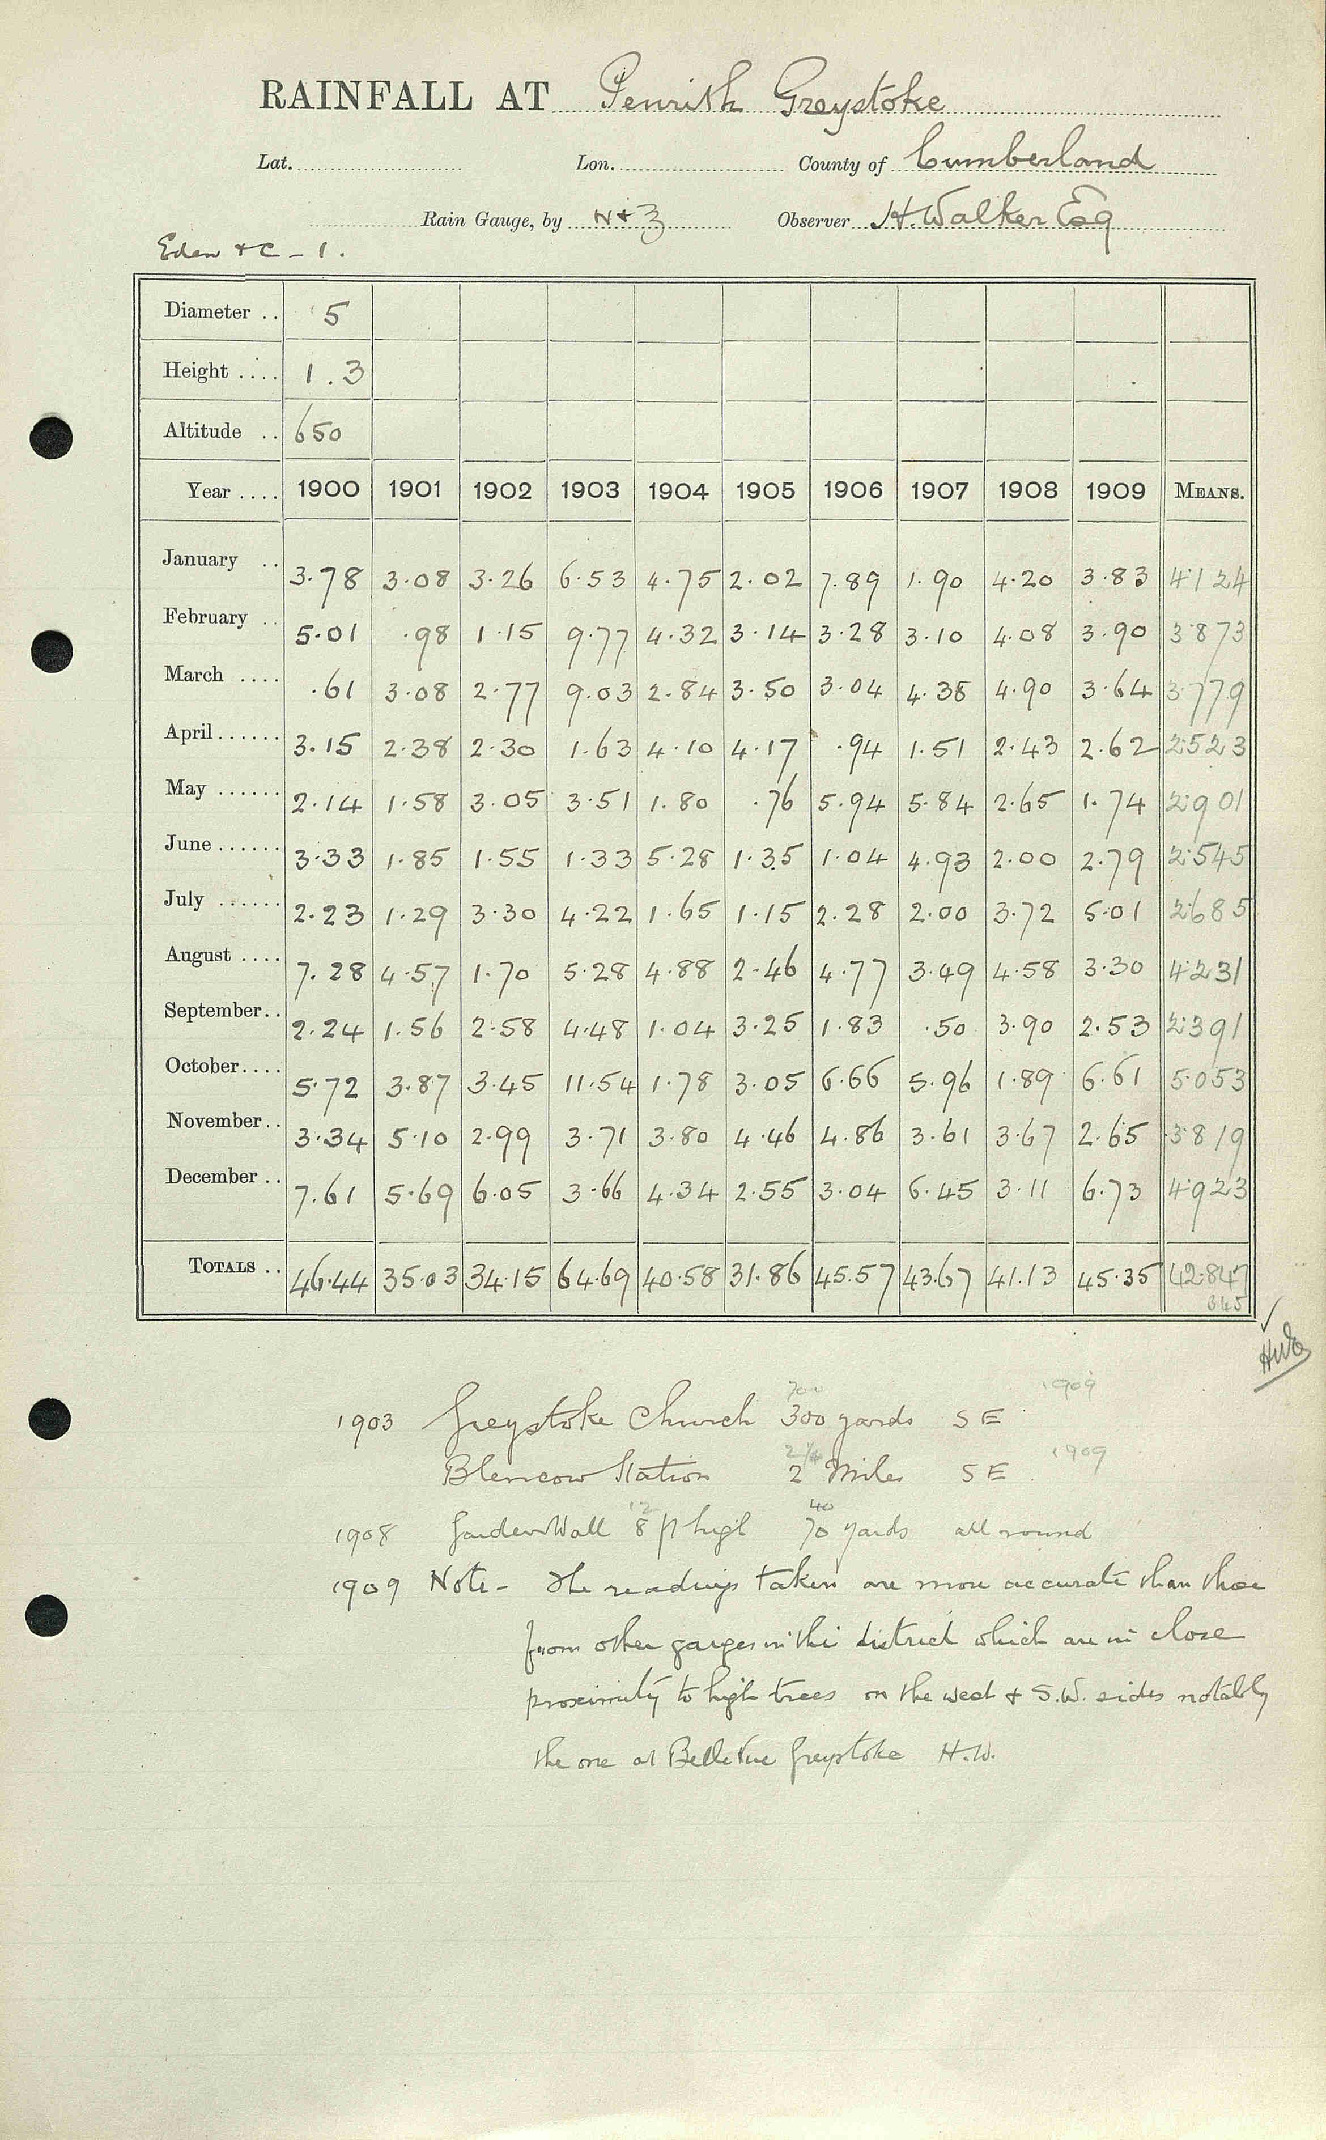 RAINFALL AT Penrith Greystoke
Lat. Lon. County of Cumberland
Rain Gauge, by N+Z Observer H. Walker Esq
Eden + C - 1.
Diameter .. 5
Height .... 1.3
Altitude .. 650
Year .... 1900 1901 1902 1903 1904 1905 1906 1907 1908 1909 MEANS.
January .. 3.78 3.08 3.26 6.53 4.75 2.02 7.89 1.90 4.20 3.83 4.124
February .. 5.01 .98 1.15 9.77 4.32 3.14 3.28 3.10 4.08 3.90 3.873
March .... .61 3.08 2.77 9.03 2.84 3.50 3.04 4.38 4.90 3.64 3.779
April ...... 3.15 2.38 2.30 1.63 4.10 4.17 .94 1.51 2.43 2.62 2.523
May ...... 2.14 1.58 3.05 3.51 1.80 .76 5.94 5.84 2.65 1.74 2.901
June ...... 3.33 1.85 1.55 1.33 5.28 1.35 1.04 4.93 2.00 2.79 2.545
July ...... 2.23 1.29 3.30 4.22 1.65 1.15 2.28 2.00 3.72 5.01 2.685
August .... 7.28 4.57 1.70 5.28 4.88 2.46 4.77 3.49 4.58 3.30 4.231
September.. 2.24 1.56 2.58 4.48 1.04 3.25 1.83 .50 3.90 2.53 2.391
October.... 5.72 3.87 3.45 11.54 1.78 3.05 6.66 5.96 1.89 6.61 5.053
November.. 3.34 5.10 2.99 3.71 3.80 4.46 4.86 3.61 3.67 2.65 3.819
December .. 7.61 5.69 6.05 3.66 4.34 2.55 3.04 6.45 3.11 6.73 4.923
TOTALS .. 46.44 35.03 34.15 64.69 40.58 31.86 45.57 43.67 41.13 45.35 42.847
345
700 1909
1903 Greystoke Church 300 yards SE
2¼ 1909
Blencow Station 2 Miles SE
12 40
1908 Garden Wall 8 ft high 70 yards all round
1909 Note - The readings taken are more accurate than those
from other gauges in this district which are in close
proximity to high trees on the west + S.W. sides notably
the one at Belle Vue Greystoke H.W.